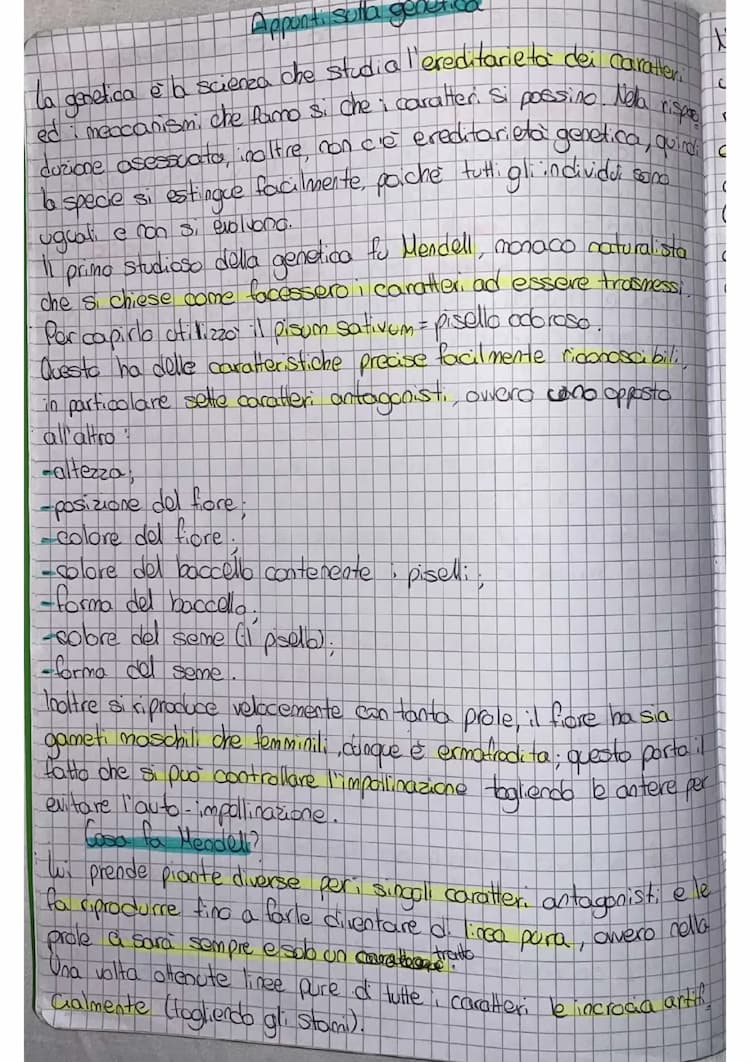 Appunti sulla genetica
La genetica è la scienza che studia l'ereditarietà dei caratteri
ed i meccanismi che fanno sì che i caratteri si possino. Nella ripro
duzione asessuata, inoltre, non c'è ereditarietà genetica, quindi
la specie si estingue facilmente, poiché tutti gli individui sono
uguali e non si evolvono.
Il primo studioso della genetica fu Mendell, monaco naturalista
che si chiese come facessero i caratteri ad essere trasmessi.
Per capirlo utilizzò il pisum sativum = pisello odoroso.
Questo ha delle caratteristiche precise facilmente riconoscibili,
in particolare sette caratteri antagonisti, ovvero uno opposto
all'altro:
-altezza;
-posizione del fiore;
-colore del fiore;
-colore del baccello contenente i piselli;
-forma del baccello;
-colore del seme (il pisello);
-forma del seme.
Inoltre si riproduce velocemente con tanta prole, il fiore ha sia
gameti maschili che femminili, dunque è ermafrodita; questo porta il
fatto che si può controllare l'impollinazione togliendo le antere per
evitare l'auto-impollinazione.
Cosa fa Mendell?
Lui prende piante diverse per i singoli caratteri antagonisti e le
fa riprodurre fino a farle diventare di linea pura, ovvero nella
prole ci sarà sempre e solo un tratto.
Una volta ottenute linee pure di tutte i caratteri le incrocia artifi
cialmente (togliendo gli stami).